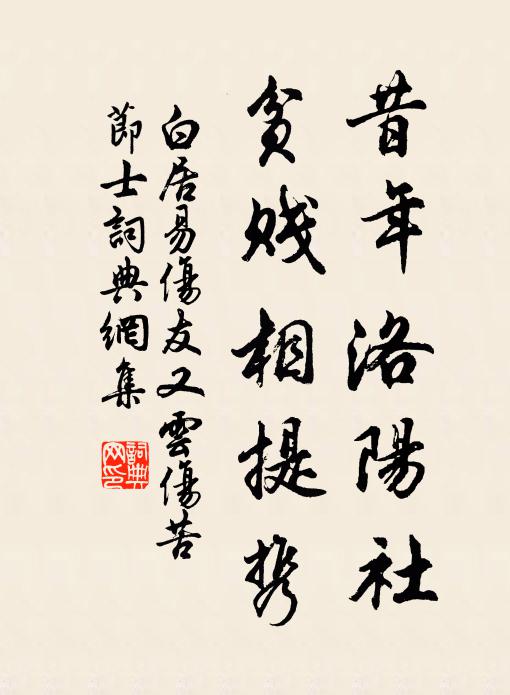 昔年洛陽社
貧賤相提攜
白居易傷友又雲傷苦
節士詞典網集
詞典網印